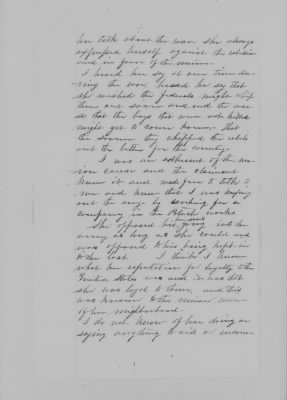 her talk about the war. She always
expressed herself against the rebellion
and in favor of the union.
I heard her say at one time du-
ring the war, heard her say that
she wished the federals might whip
them out soon and end the war
so that the boys that were not killed
might get to come home, that
the sooner they whipped the rebels
out the better for the country.
I was an adherent of the un-
ion cause and the claimant
knew it and was free to talk to
me and knew that I was keeping
out the army by working for a
company in the works
She opposed his going into the
army as long as she could and
was opposed to his being kept in
to the last. I think I know
what her reputation for loyalty to the
United States was and it was that
she was loyal to them, and this
was known to the union men
of her neighborhood.
I do not know of her doing or
saying anything to aid or